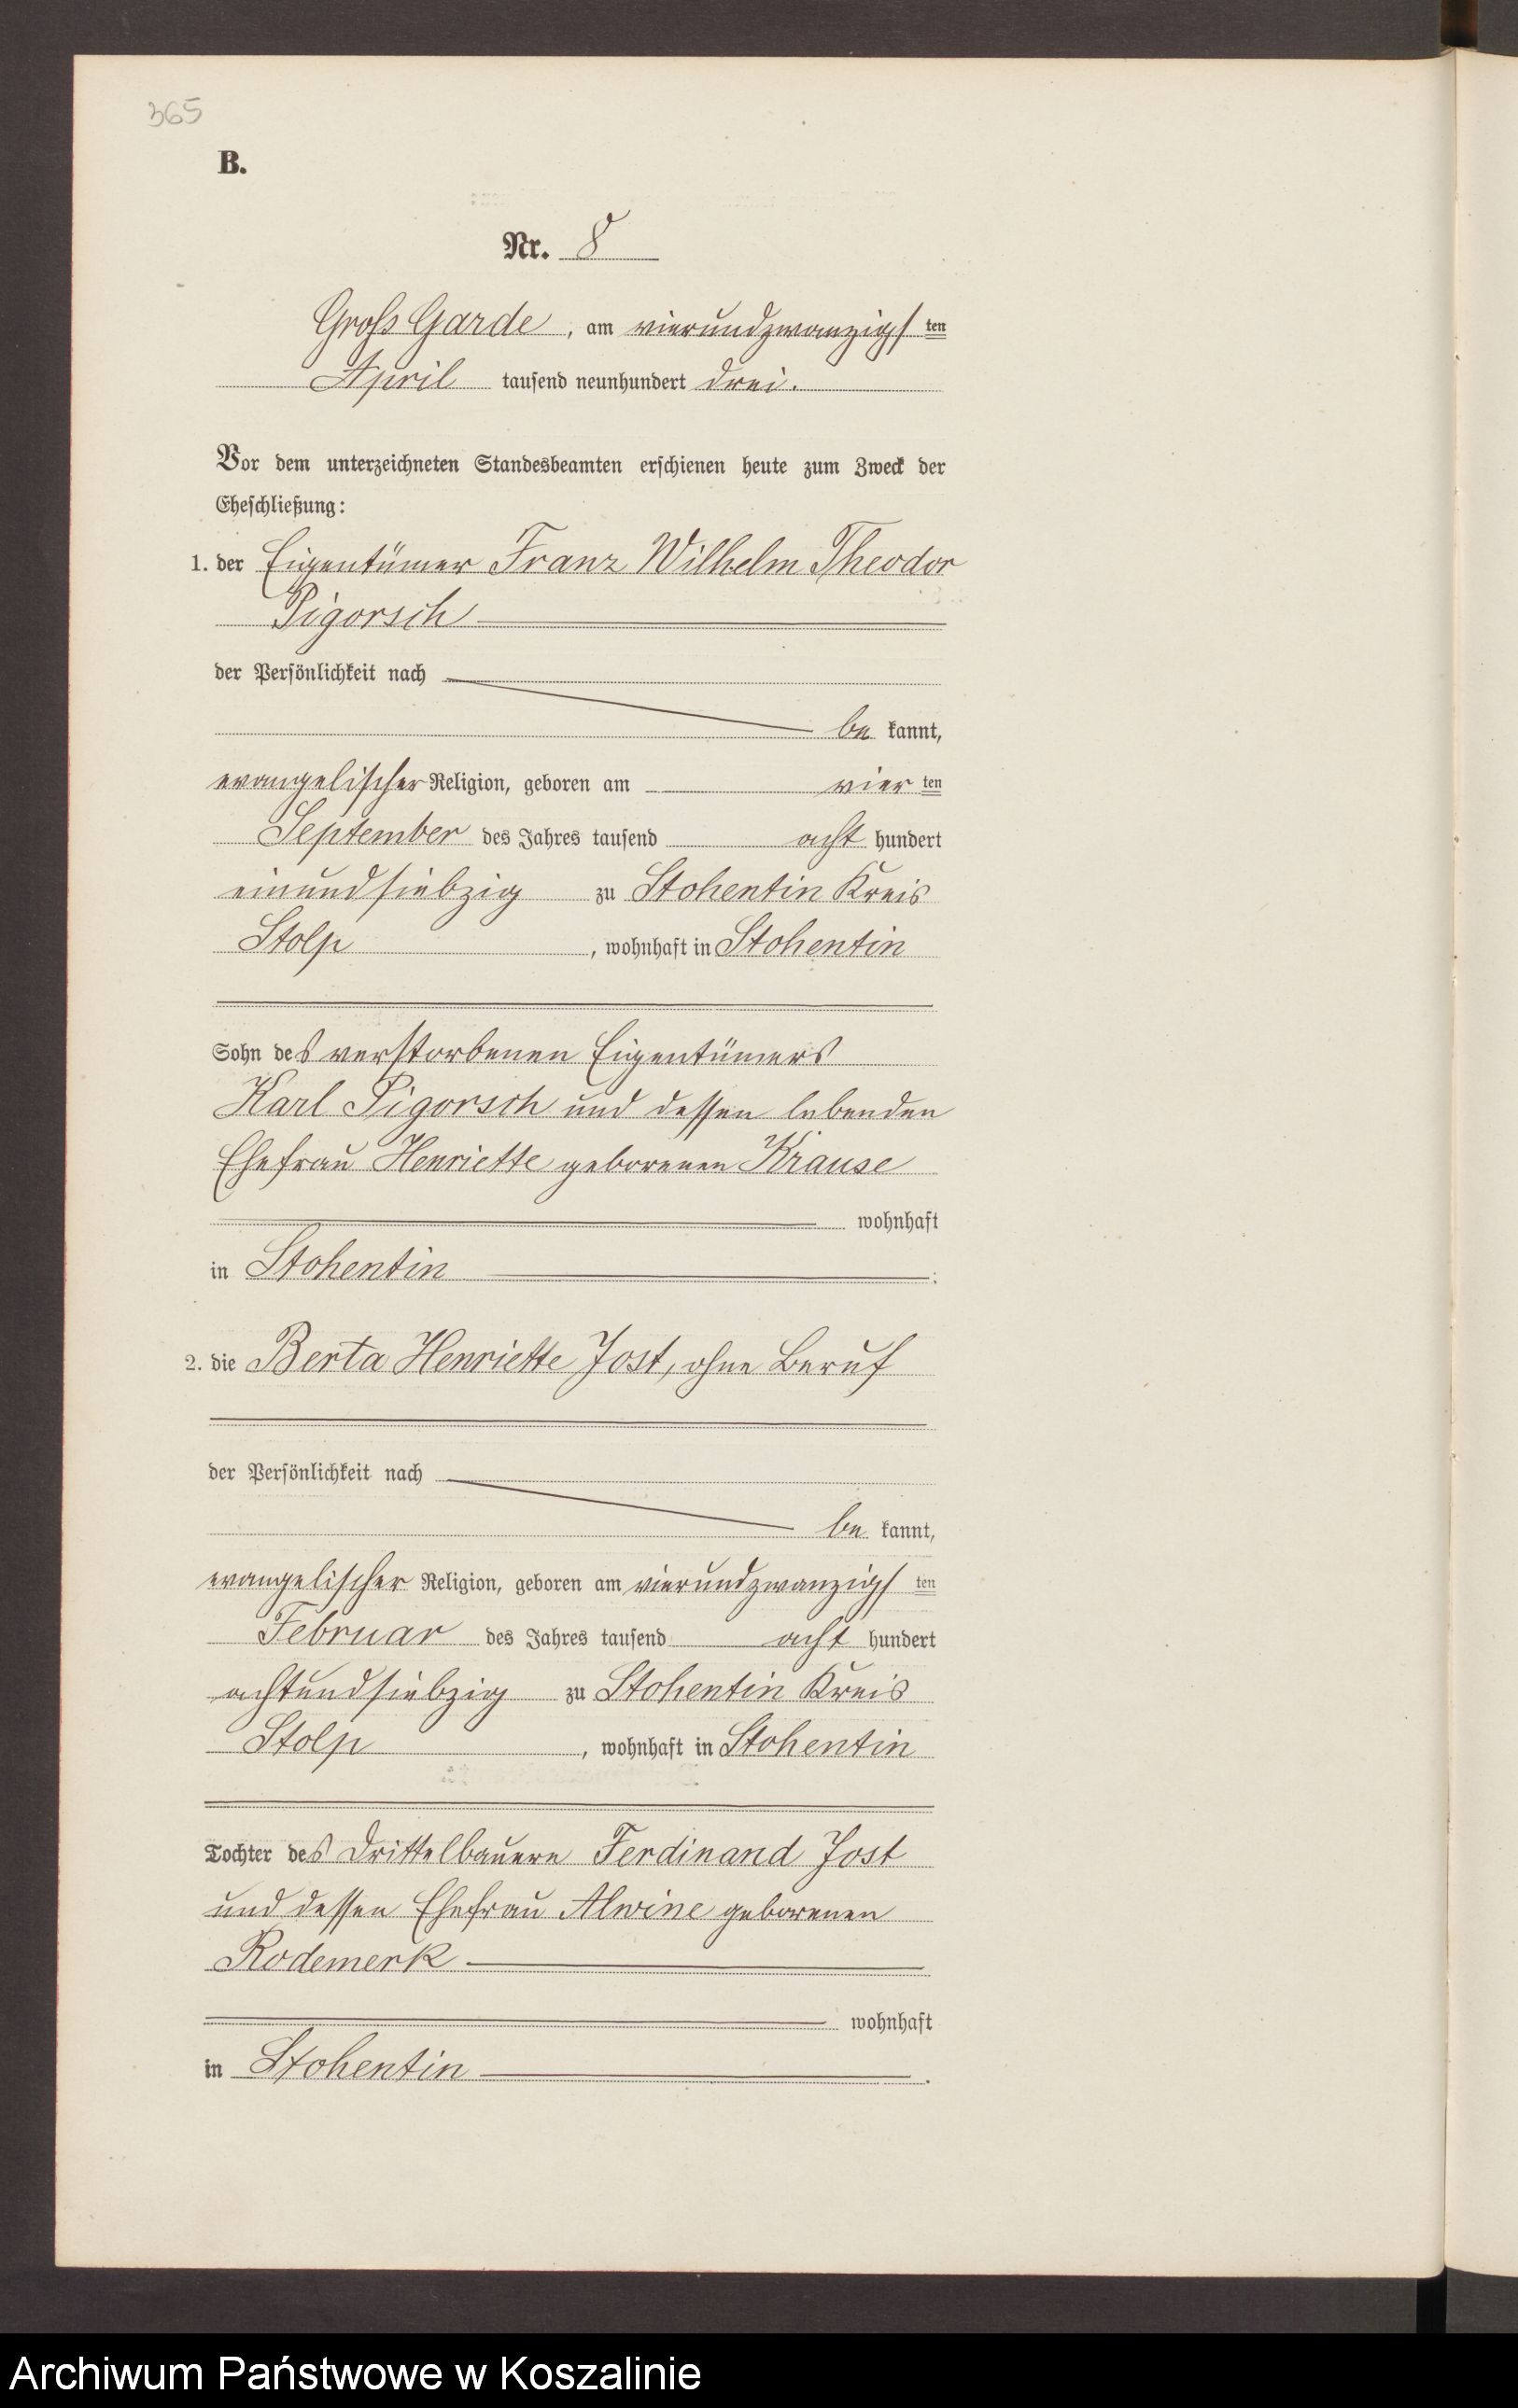 365
B.
Nr. 8
Groß Garde, am vierundzwanzigsten
April tausend neunhundert drei.
Vor dem unterzeichneten Standesbeamten erschienen heute zum Zweck der
Eheschließung:
1. der Eigentümer Franz Wilhelm Theodor
Pigorsch
der Persönlichkeit nach
be kannt,
evangelischer Religion, geboren am vier ten
September des Jahres tausend acht hundert
einundsiebzig zu Stohentin Kreis
Stolp, wohnhaft in Stohentin
Sohn des verstorbenen Eigentümers
Karl Pigorsch und dessen lebenden
Ehefrau Henriette geborenen Krause
wohnhaft
in Stohentin:
2. die Berta Henriette Jost, ohne Beruf
der Persönlichkeit nach
be kannt,
evangelischer Religion, geboren am vierundzwanzigsten
Februar des Jahres tausend acht hundert
achtundsiebzig zu Stohentin Kreis
Stolp, wohnhaft in Stohentin
Tochter des Drittelbauern Ferdinand Jost
und dessen Ehefrau Alwine geborenen
Rodemerk
wohnhaft
in Stohentin.
Archiwum Państwowe w Koszalinie